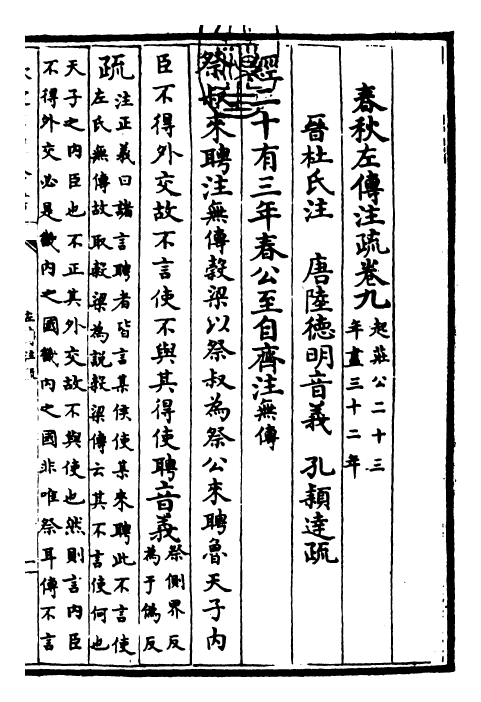 春秋左傳注疏卷九
起莊公二十三
年盡三十二年
晉杜氏注 唐陸德明音義 孔穎達疏
經二十有三年春公至自齊注無傳
祭叔來聘注無傳穀梁以祭叔為祭公來聘魯天子內
臣不得外交故不言使不與其得使聘音義
祭側界反
為于偽反
疏
注正義曰諸言聘者皆言某侯使某來聘此不言使
左氏無傳故取穀梁為說穀梁傳云其不言使何也
天子之內臣也不正其外交故不與使也然則言內臣
不得外交必是畿內之國畿內之國非唯祭耳傳不言